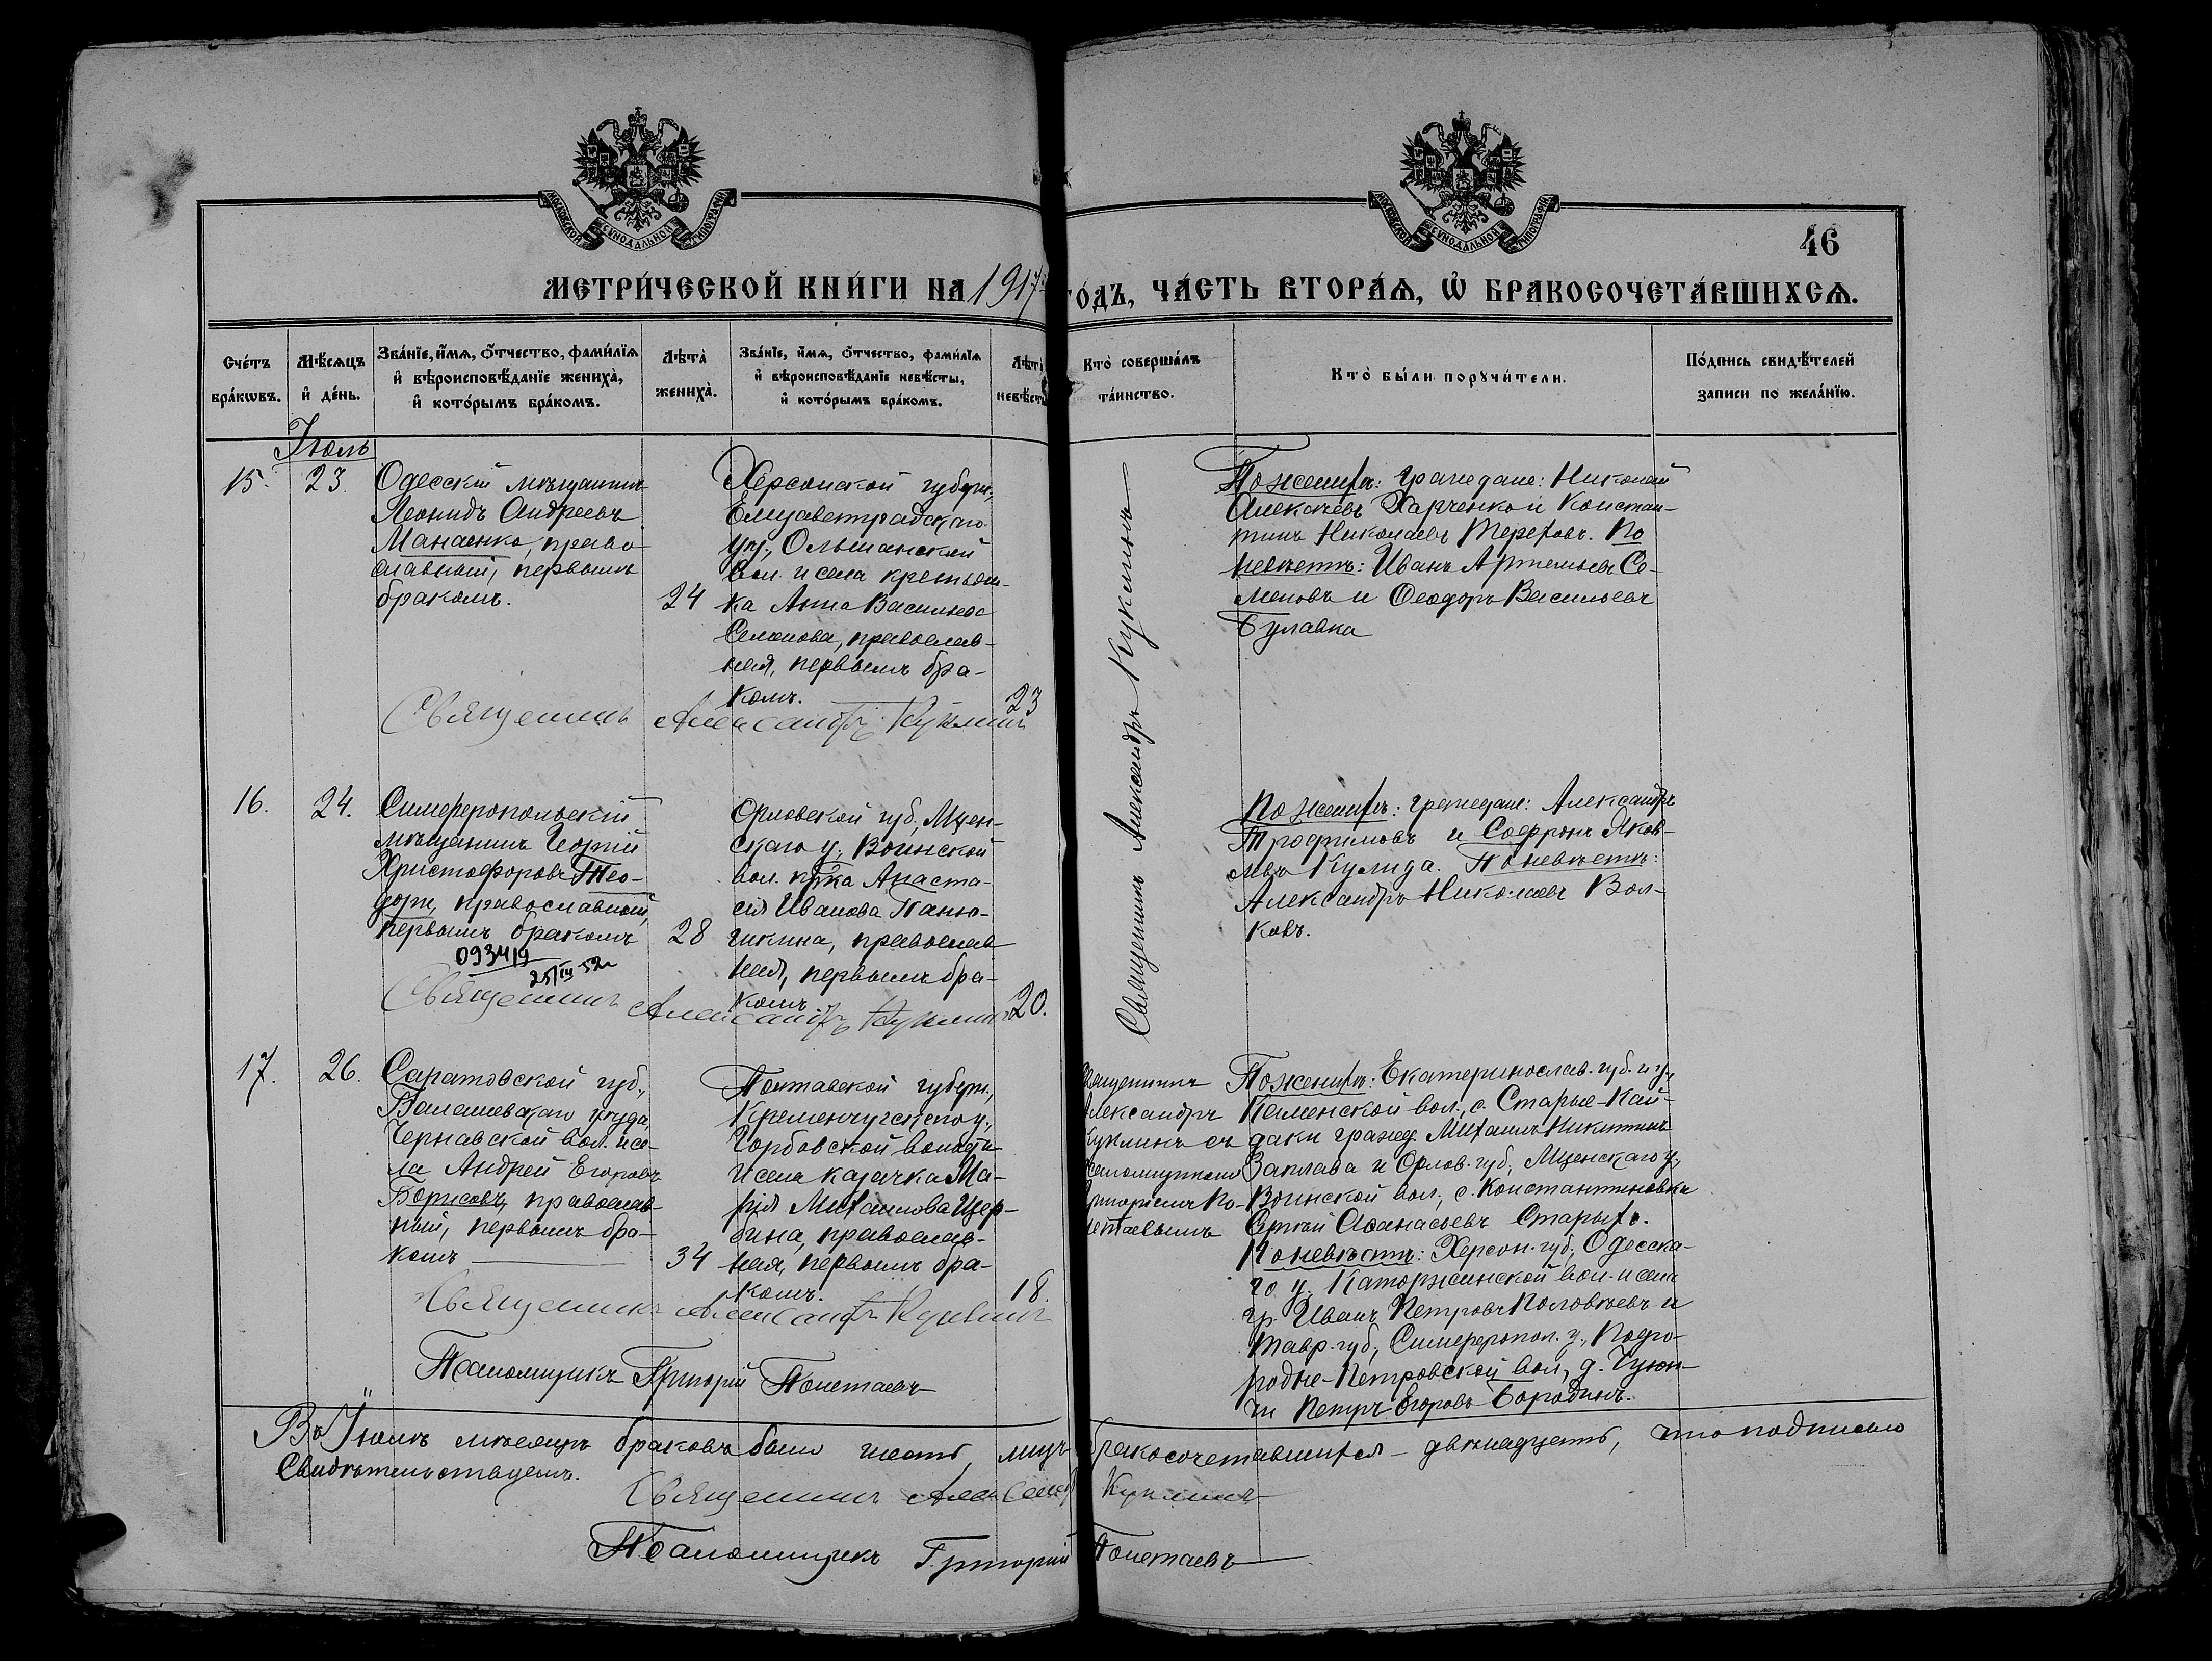 МОСКОВСКОЙ СѴНОДАЛЬНОЙ ТИПОГРАФІИ
МОСКОВСКОЙ СѴНОДАЛЬНОЙ ТИПОГРАФІИ
46
МЕТРИ́ЧЕСКОЙ КНИ́ГИ НА 1917 ГО́ДЪ, ЧА́СТЬ ВТОРА́Ѧ, Ѽ БРАКОСОЧЕТА́ВШИХСѦ.
Сче́тъ
бра́кѡвъ.
Мѣ́сѧцъ
и҆ де́нь.
Зва́нїе, и҆́мѧ, ѻ҆́тчество, фами́лїѧ
и҆ вѣроисповѣ́данїе жениха̀,
и҆ кото́рымъ бра́комъ.
Лѣта̀
жениха̀.
Зва́нїе, и҆́мѧ, ѻ҆́тчество, фами́лїѧ
и҆ вѣроисповѣ́данїе невѣ́сты,
и҆ кото́рымъ бра́комъ.
Лѣта̀
невѣ́сты
Кто̀ соверша́лъ
та́инство.
Кто̀ бы́ли порꙋчи́тели.
По́дпись свидѣ́телей
записи по жела́нїю.
Іюль
15.
23.
Одесскій мѣщанинъ
Леонидъ Андреевъ
Манаенко, право-
славный, первымъ
бракомъ.
24
Херсонской губерн.,
Елисаветградскаго
уѣз., Ольшанской
вол. и села крестьян-
ка Анна Васильева
Семенова, православ-
ная, первымъ бра-
комъ.
23
Священникъ Александръ Куклинъ
Священникъ Александръ Куклинъ
По женихѣ: граждане: Николай
Алексѣевъ Харченко и Констан-
тинъ Николаевъ Тереховъ. По
невѣстѣ: Иванъ Артемьевъ Се-
меновъ и Ѳеодоръ Васильевъ
Булавка
16.
24.
Симферопольскій
мѣщанинъ Георгій
Христофоровъ Тео-
дори, православный,
первымъ бракомъ
093419
25/III 52г
28
Орловской губ., Мцен-
скаго у., Воинской
вол. кр-ка Анаста-
сія Иванова Паню-
шкина, православ
ная, первымъ бра-
комъ
20.
Священникъ Александръ Куклинъ
По женихѣ: граждане: Александръ
Трофимовъ и Софронъ Яков-
левъ Кулида. По невѣстѣ:
Александръ Николаевъ Вол-
ковъ.
17.
26.
Саратовской губ.,
Балашевскаго уѣзда,
Чернавской вол. и се-
ла Андрей Егоровъ
Борисовъ, православ-
ный, первымъ бра-
комъ
34
Полтавской губерн.,
Кременчугскаго у.,
Горбовской волости
и села казачка Ма-
рія Михаилова Щер-
бина, православ-
ная, первымъ бра-
комъ.
18.
Священникъ Александръ Куклинъ
Псаломщикъ Григорій Полетаевъ
Священникъ
Александръ
Куклинъ съ
псаломщикомъ
Григоріемъ По-
летаевымъ
По женихѣ: Екатеринослав. губ. и у.,
Каменской вол., с. Старые-Кай-
даки гражд. Михаилъ Никитинъ
Заплава и Орлов. губ., Мценскаго у.,
Воинской вол., с. Константиновки
Сергѣй Аѳанасьевъ Старыхъ.
По невѣстѣ: Херсон. губ., Одесска-
го у., Каторжинской вол. и села
гр. Иванъ Петровъ Половѣевъ и
Тавр. губ., Симфероп. у., Подго-
родне-Петровской вол., д.
Петръ Егоровъ Бородинъ.
Въ Іюлѣ мѣсяцѣ браковъ было шесть, лицъ бракосочетавшихся - двѣнадцать, что подписью
Свидѣтельствуемъ.
Священникъ Александръ Куклинъ
Псаломщикъ Григорій Полетаевъ